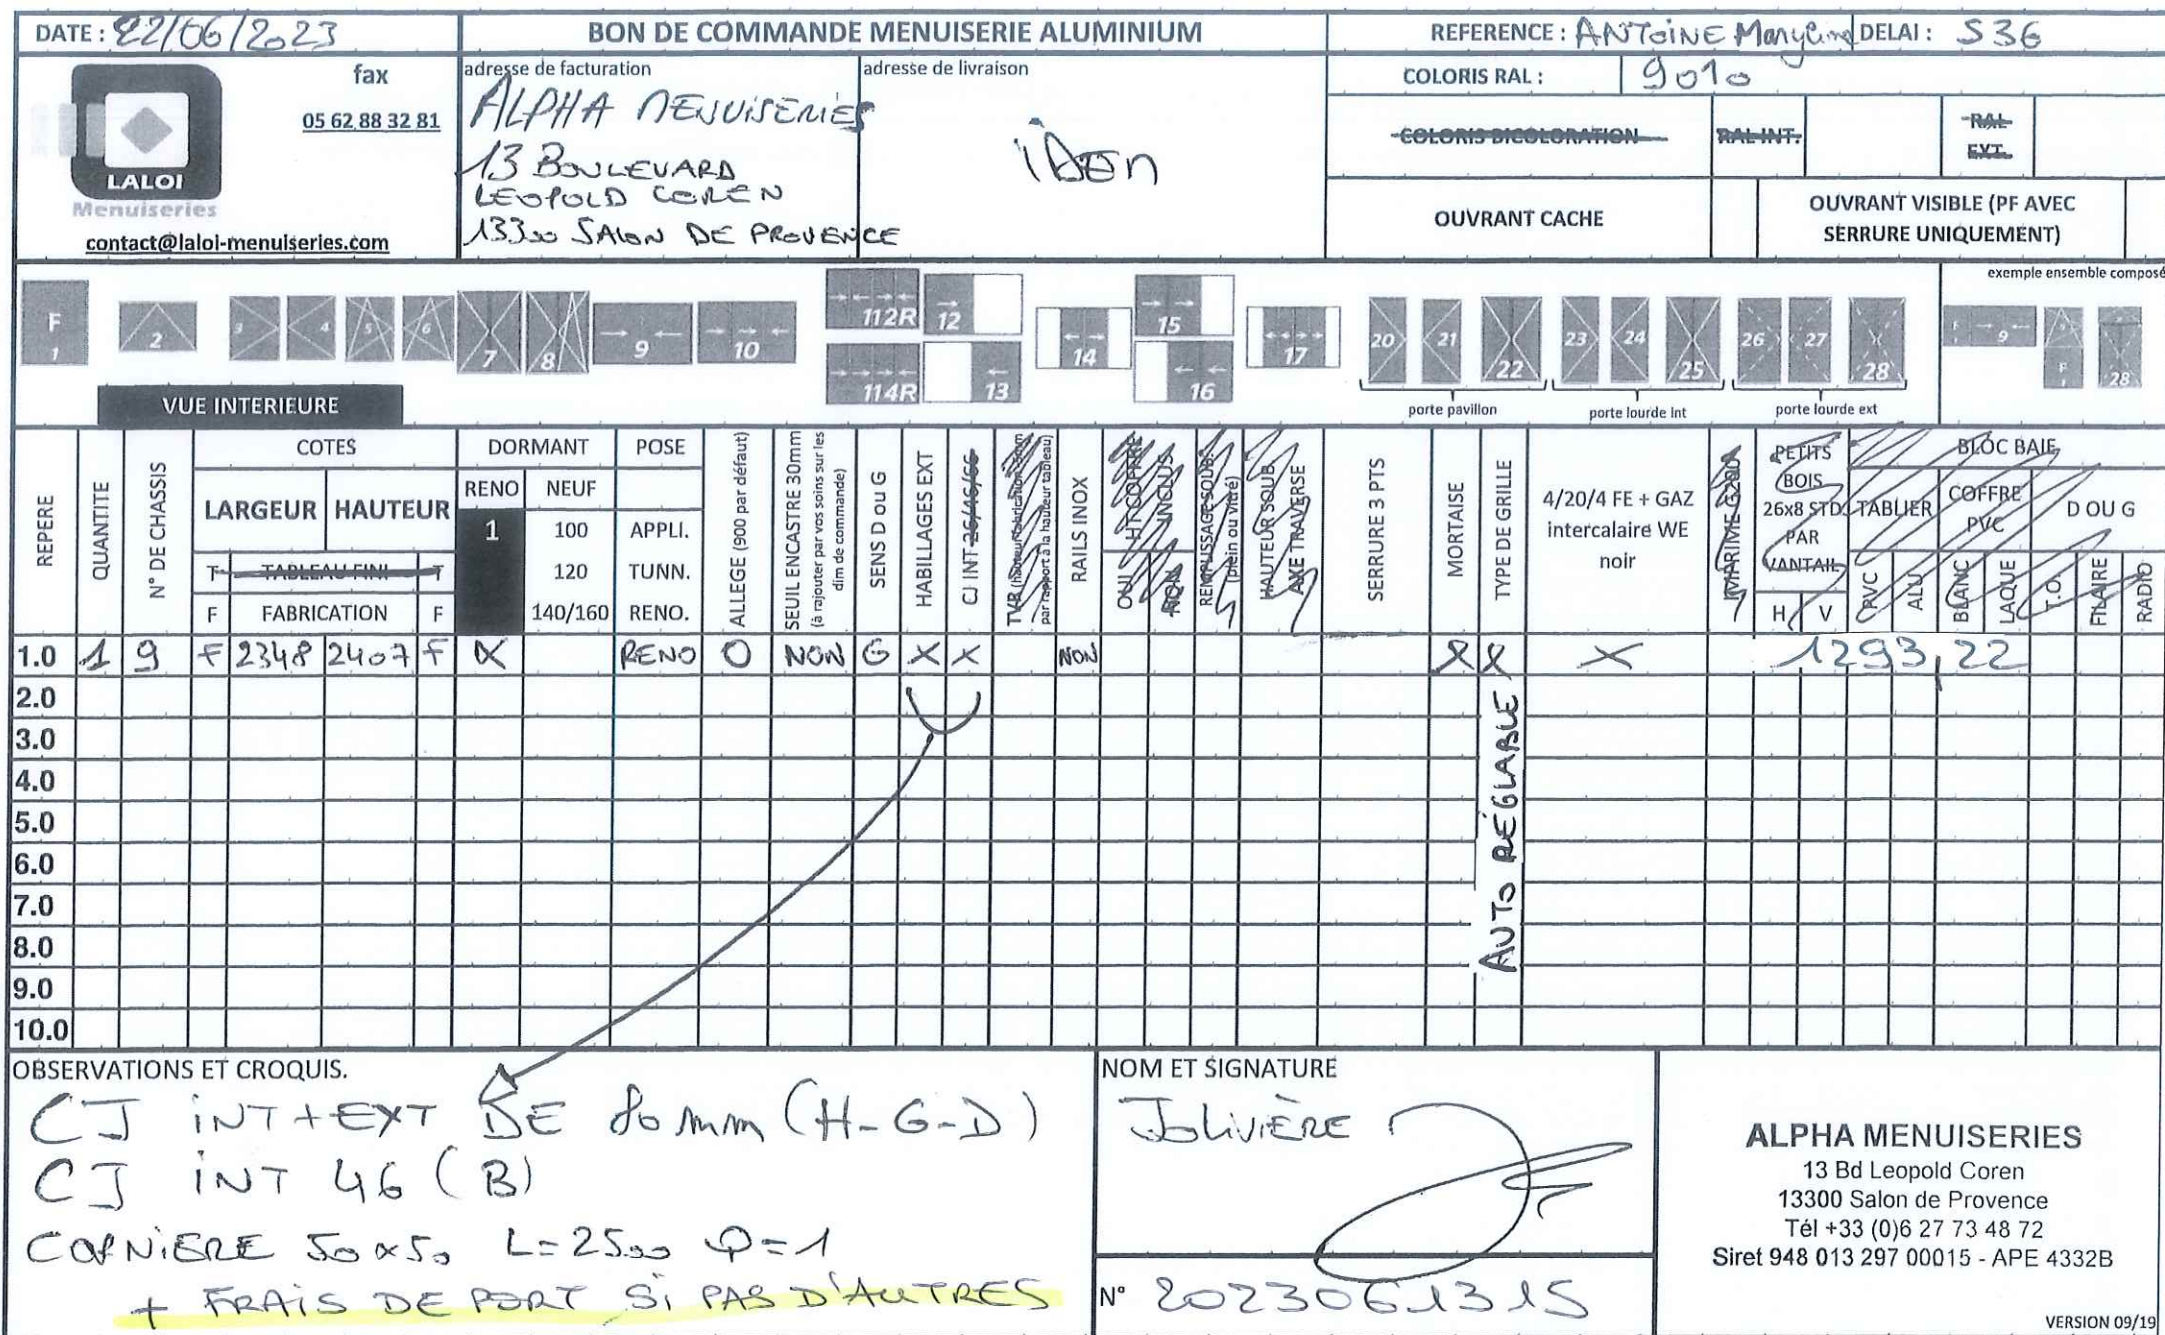 DATE : 22/06/2023
BON DE COMMANDE MENUISERIE ALUMINIUM
REFERENCE : ANTOINE Maryline DELAI : S36
LALOI
Menuiseries
fax
05 62 88 32 81
contact@laloi-menuiseries.com
adresse de facturation
ALPHA MENUISERIES
13 BOULEVARD
LEOPOLD COREN
13300 SALON DE PROVENCE
adresse de livraison
iDEn
COLORIS RAL : 9010
COLORIS BICOLORATION RAL INT. RAL EXT.
OUVRANT CACHE
OUVRANT VISIBLE (PF AVEC
SERRURE UNIQUEMENT)
exemple ensemble composé
F 1 2 3 4 5 6 7 8 9 10 112R 114R 12 13 14 15 16 17 20 21 22 23 24 25 26 27 28 F 9 5 F 28
porte pavillon porte lourde int porte lourde ext
VUE INTERIEURE
REPERE
QUANTITE
N° DE CHASSIS
COTES
LARGEUR HAUTEUR
T TABLEAU FINI T
F FABRICATION F
DORMANT
RENO NEUF
1 100
120
140/160
POSE
APPLI.
TUNN.
RENO.
ALLEGE (900 par défaut)
SEUIL ENCASTRE 30mm
(à rajouter par vos soins sur les
dim de commande)
SENS D ou G
HABILLAGES EXT
CJ INT 26/46/66
par rapport à la hauteur tableau)
RAILS INOX
HT COFFRE
INCLUS
OUI NON
REMPLISSAGE SOUB.
(plein ou vitré)
HAUTEUR SOUB.
AXE TRAVERSE
SERRURE 3 PTS
MORTAISE
TYPE DE GRILLE
4/20/4 FE + GAZ
intercalaire WE
noir
PETITS
BOIS
26x8 STD
PAR
VANTAIL
H V
BLOC BAIE
TABLIER COFFRE PVC D OU G
PVC ALU BLANC LAQUE T.O. FILAIRE RADIO
1.0 1 9 F 2348 2407 F X RENO 0 NON G X X NON X X X 1293,22
AUTO RÉGLABLE
2.0
3.0
4.0
5.0
6.0
7.0
8.0
9.0
10.0
OBSERVATIONS ET CROQUIS.
CJ INT + EXT DE 80 mm (H-G-D)
CJ INT 46 (B)
CORNIERE 50x50 L=2500 Q=1
+ FRAIS DE PORT SI PAS D'AUTRES
NOM ET SIGNATURE
JOLIVIÈRE
N° 2023061315
ALPHA MENUISERIES
13 Bd Leopold Coren
13300 Salon de Provence
Tél +33 (0)6 27 73 48 72
Siret 948 013 297 00015 - APE 4332B
VERSION 09/19